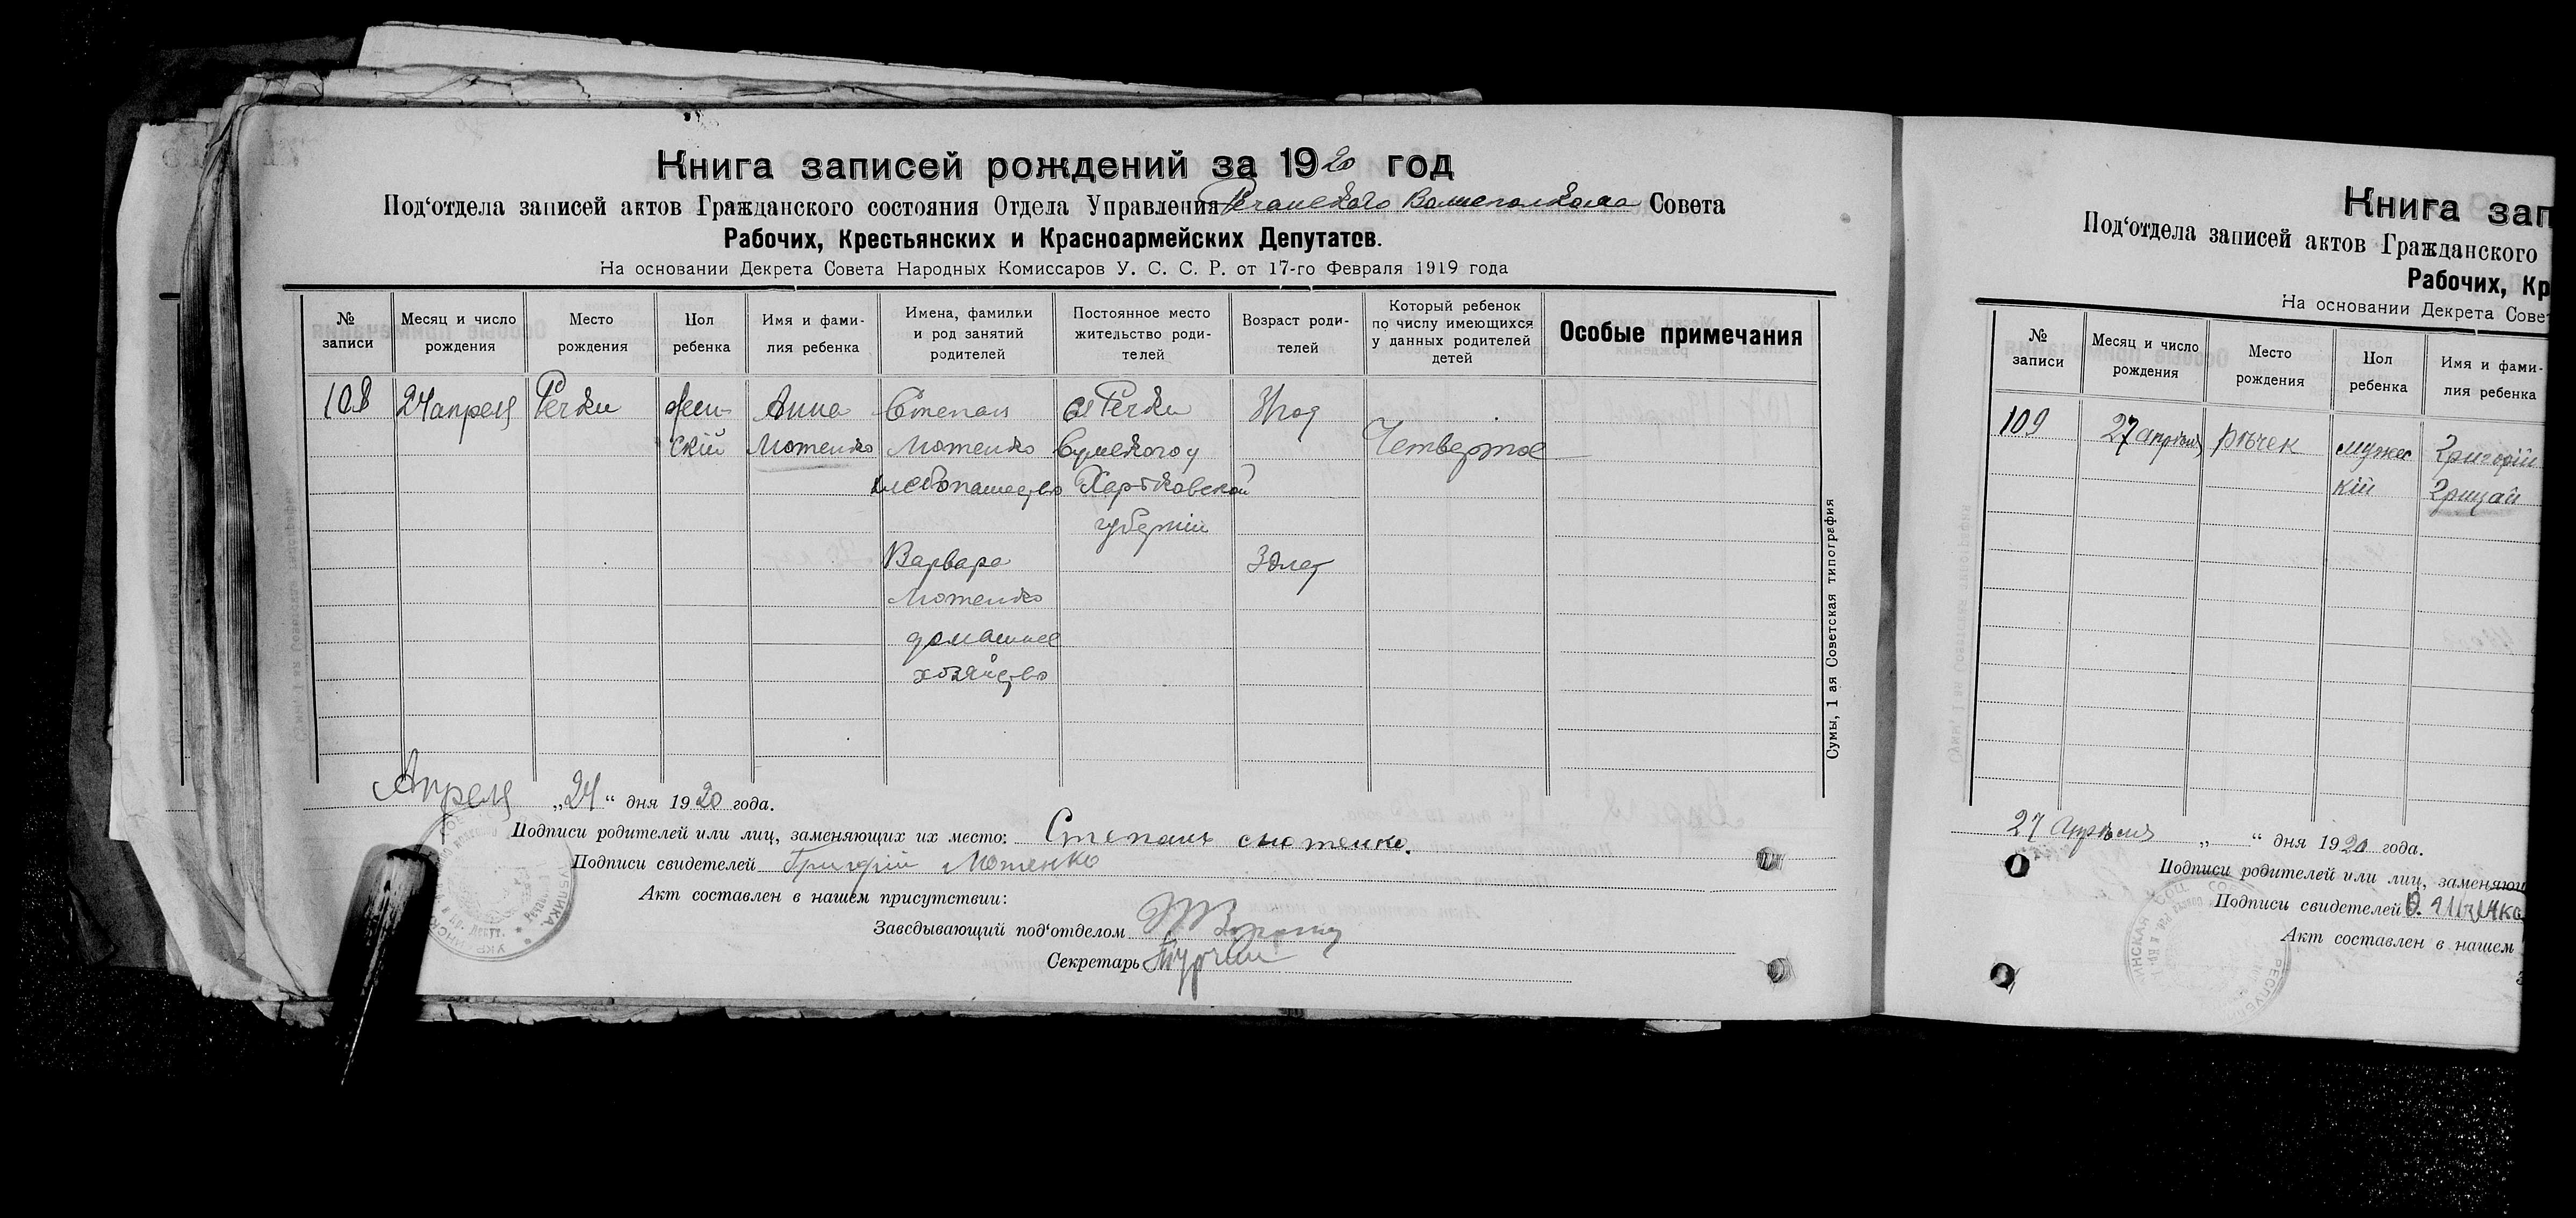 Книга записей рождений за 1920 год
Под‘отдела записей актов Гражданского состояния Отдела Управления Речанского Волисполкома Совета
Рабочих, Крестьянских и Красноармейских Депутатов.
На основании Декрета Совета Народных Комиссаров У. С. С. Р. от 17-го Февраля 1919 года
№ записи
Месяц и число рождения
Место рождения
Пол ребенка
Имя и фами-
лия ребенка
Имена, фамилии
и род занятий
родителей
Постоянное место
жительство роди-
телей
Возраст роди-
телей
Который ребенок
по числу имеющихся
у данных родителей
детей
Особые примечания
108
24 апреля
Речки
жен-
скій
Анна
Мотенко
Степан
Мотенко
хлебопашество
Варвара
Мотенко
домашнее
хозяйство
с Речки
Сумского у
Харьковской
губернии
31 год
30 лет
Четвертое
Сумы, 1 ая Советская типография
Апреля „24“ дня 1920 года.
Подписи родителей или лиц, заменяющих их место: Степанъ
Подписи свидетелей Григорій Мотенко
Акт составлен в нашем присутствии:
Заведывающий под‘отделом
Секретарь
Книга зап
Под‘отдела записей актов Гражданского
Рабочих, Кр
На основании Декрета Совет
№ записи
Месяц и число рождения
Место рождения
Пол ребенка
Имя и фами-
лия ребенка
109
27 апрѣля
рѣчек
мужес
кій
Григорій
Грицай
27 Апрѣля „ “ дня 1920 года.
Подписи родителей или лиц, заменяющ
Подписи свидетелей
Акт составлен в нашем